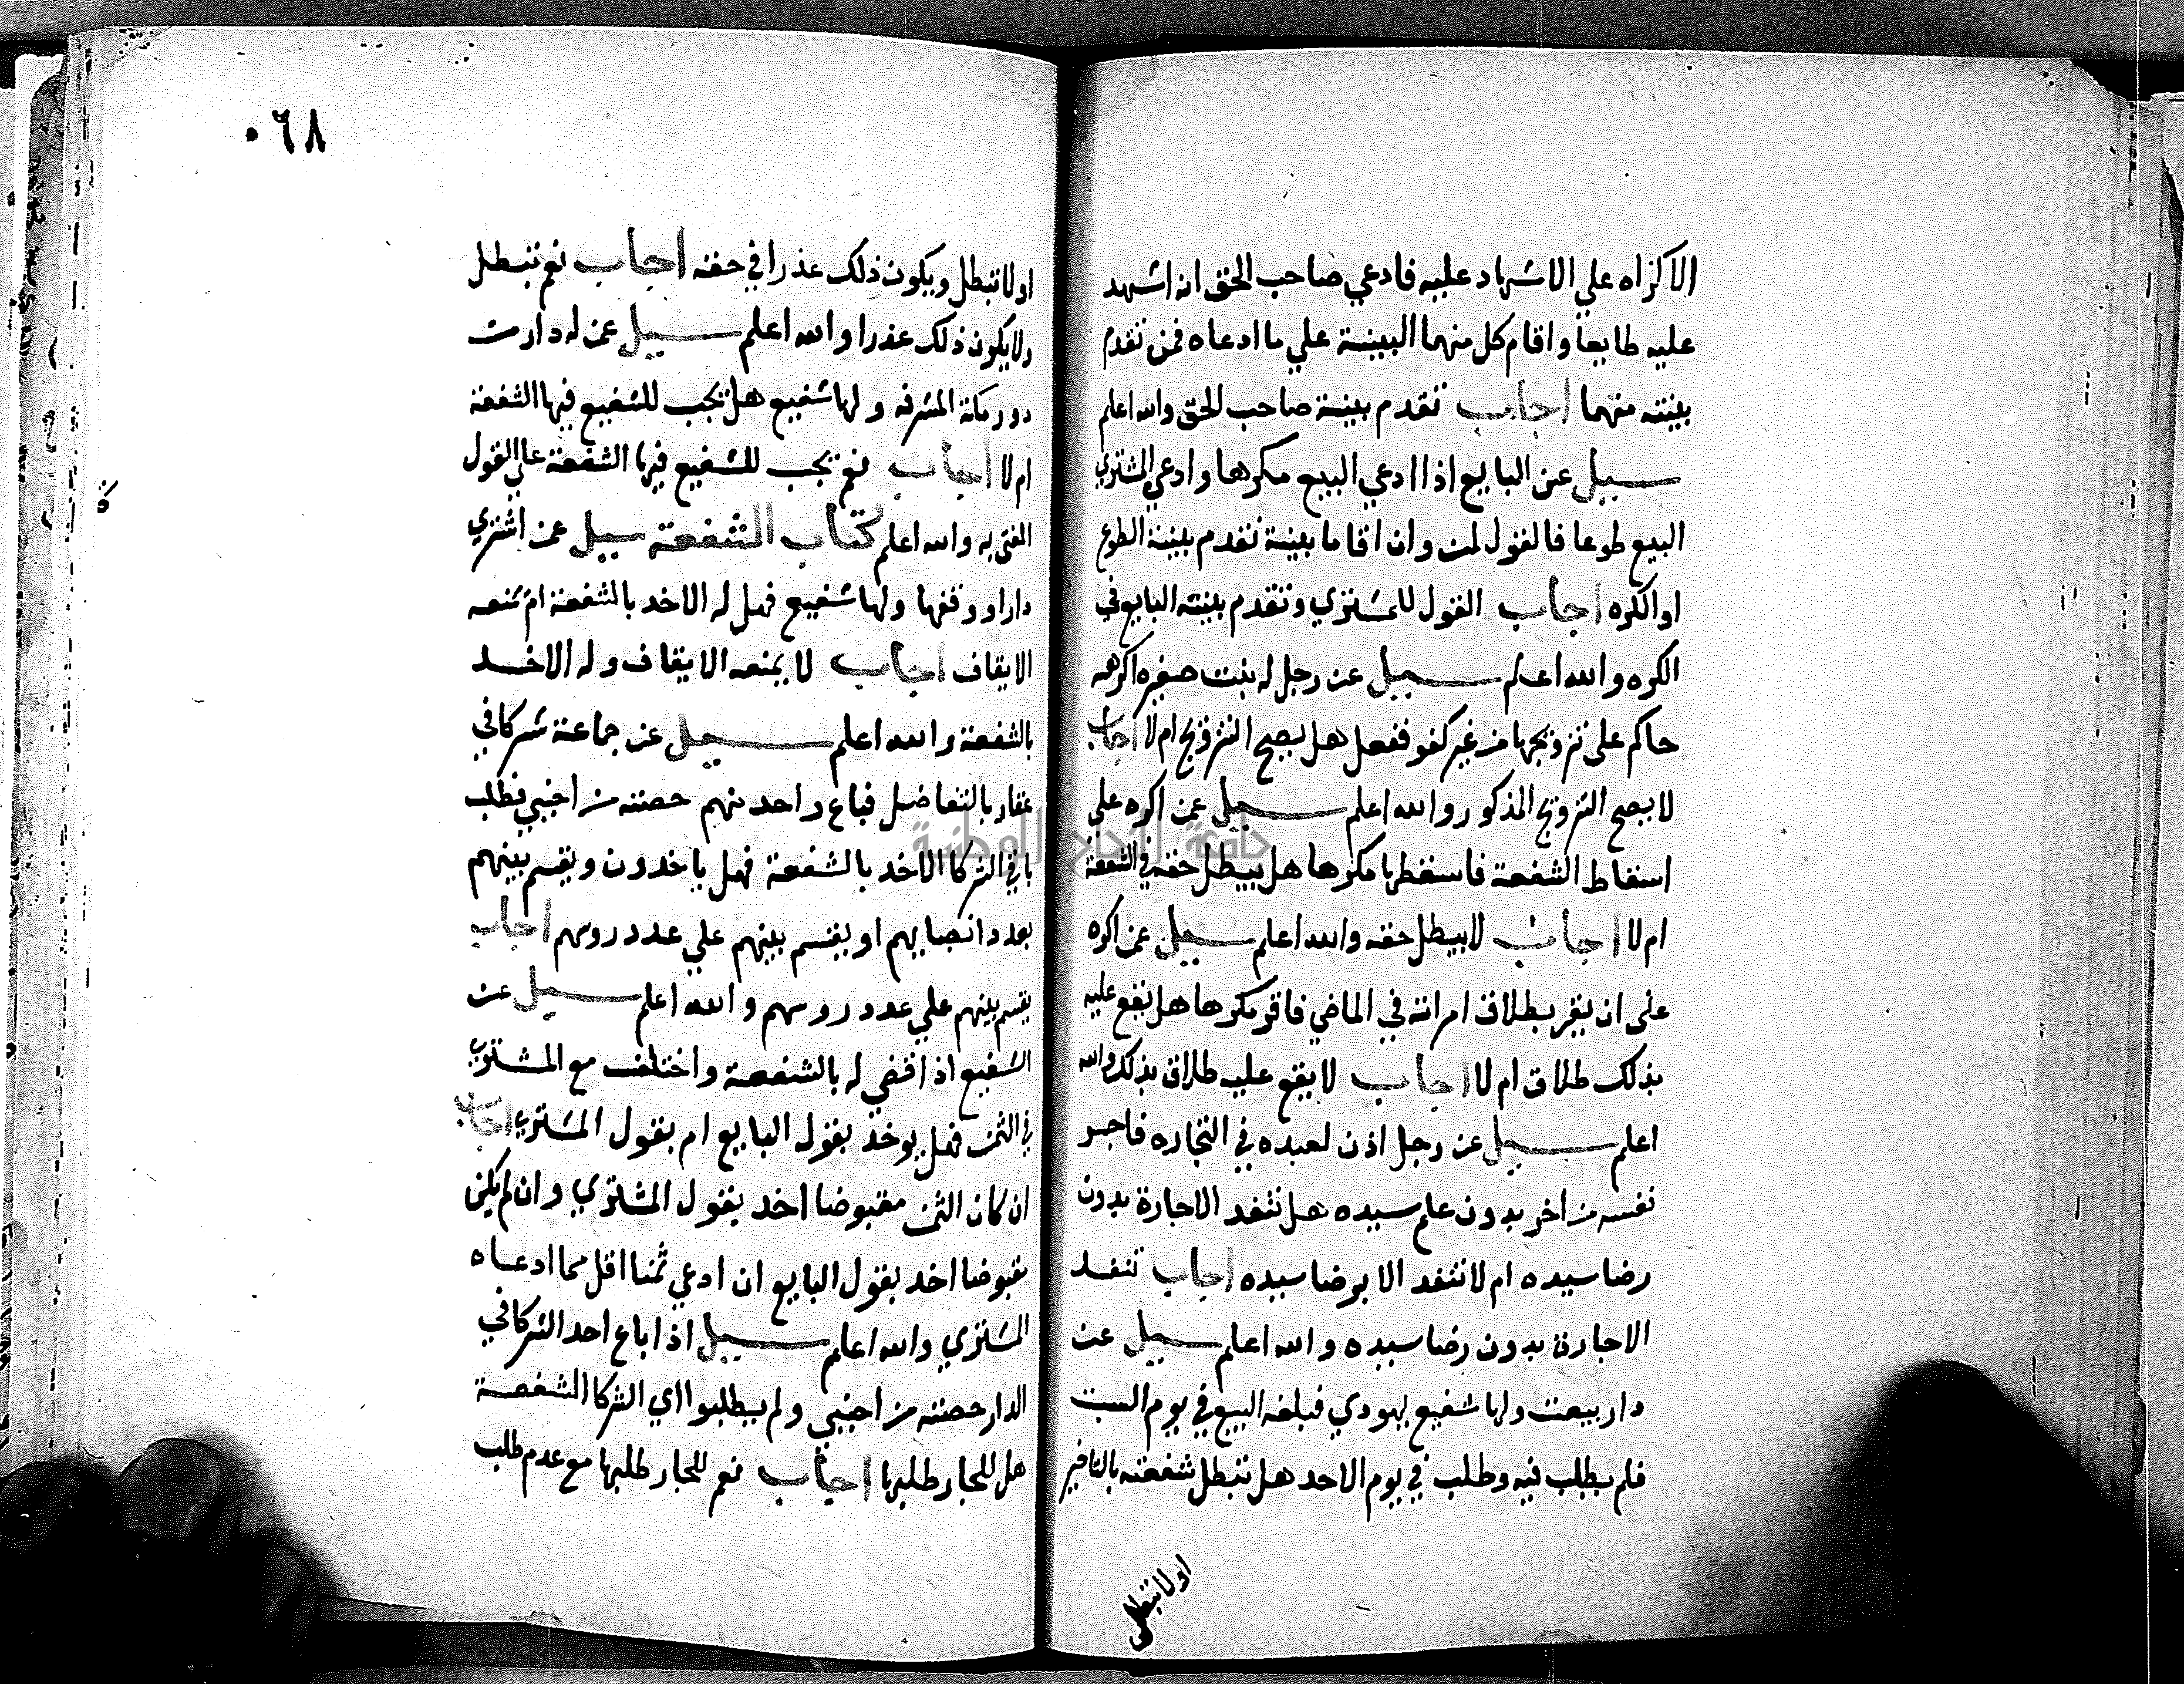 الاكراه علي الاشهاد عليه فادعي صاحب الحق انه اشهد
عليه طايعا واقام كل منهما البينة علي ما ادعاه فمن تقدم
بينته منهما اجاب تقدم بينة صاحب الحق والله اعلم
سيل عن البايع اذا ادعي البيع مكرها وادعي المشتري
البيع طوعا فالقول لمن وان اقاما بينة تقدم بينة الطوع
او الكره اجاب القول للمشتري وتقدم بينته البايع في
الكره والله اعلم سيل عن رجل له بنت صغيره اكرهه
حاكم على تزويجها من غير كفو ففعل هل يصح التزويج ام لا اجاب
لا يصح التزويج المذكور والله اعلم سيل عمن اكره على
اسقاط الشفعة فاسقطها مكرها هل يبطل حقه في الشفعة
ام لا اجاب لا يبطل حقه والله اعلم سيل عمن اكره
على ان يقر بطلاق امراته في الماضي فاقر مكرها هل يقع عليه
بذلك طلاق ام لا اجاب لا يقع عليه طلاق بذلك والله
اعلم سيل عن رجل اذن لعبده في التجاره فاجر
نفسه من اخر بدون علم سيده هل تنفد الاجارة بدون
رضا سيده ام لا تنفد الا برضا سيده اجاب تنفد
الاجارة بدون رضا سيده والله اعلم سيل عن
دار بيعت ولها شفيع يهودي فبلغه البيع في يوم السبت
فلم يطلب فيه وطلب في يوم الاحد هل تبطل شفعته بالتاخير
او لا تبطل
٠٦٨
او لا تبطل ويكون ذلك عذرا في حقه اجاب نعم تبطل
ولا يكون ذلك عذرا والله اعلم سيل عمن له دار من
دور مكة المشرفه ولها شفيع هل يجب للشفيع فيها الشفعة
ام لا اجاب نعم يجب للشفيع فيها الشفعة على القول
المفتى به والله اعلم كتاب الشفعة سيل عمن اشتري
دارا ووقفها ولها شفيع فهل له الاخد بالشفعة ام يمنعه
الايقاف اجاب لا يمنعه الايقاف وله الاخد
بالشفعة والله اعلم سيل عن جماعة شركا في
عقار بالتفاضل فباع واحد منهم حصته من اجنبي فطلب
باقي الشركا الاخد بالشفعة فهل ياخدون ويقسم بينهم
بعدد انصبايهم او يقسم بينهم علي عدد روسهم اجاب
يقسم بينهم علي عدد روسهم والله اعلم سيل عن
الشفيع اذا قضي له بالشفعة واختلف مع المشتري
في الثمن فهل يوخد بقول البايع ام بقول المشتري اجاب
ان كان الثمن مقبوضا اخد بقول المشتري وان لم يكن
مقبوضا اخد بقول البايع ان ادعي ثمنا اقل مما ادعاه
المشتري والله اعلم سيل اذا باع احد الشركا في
الدار حصته من اجنبي ولم يطلبوا اي الشركا الشفعة
هل للجار طلبها اجاب نعم للجار طلبها مع عدم طلب
جامعة النجاح الوطنية